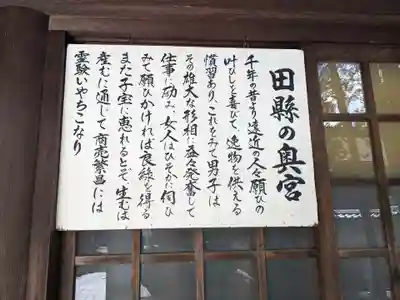 田縣の奥宮
千年の昔より遠近の人々願ひの
叶ひしを喜びて、逸物を供える
慣習あり、これをみて男子は
その雄大な形相に益々発奮して
仕事に励み、女人はひそかに伺ひ
みて願ひかければ良縁を得る
また子宝に恵れるとぞ 生むは
産むに通じて商売繁昌には
霊験いやちこなり